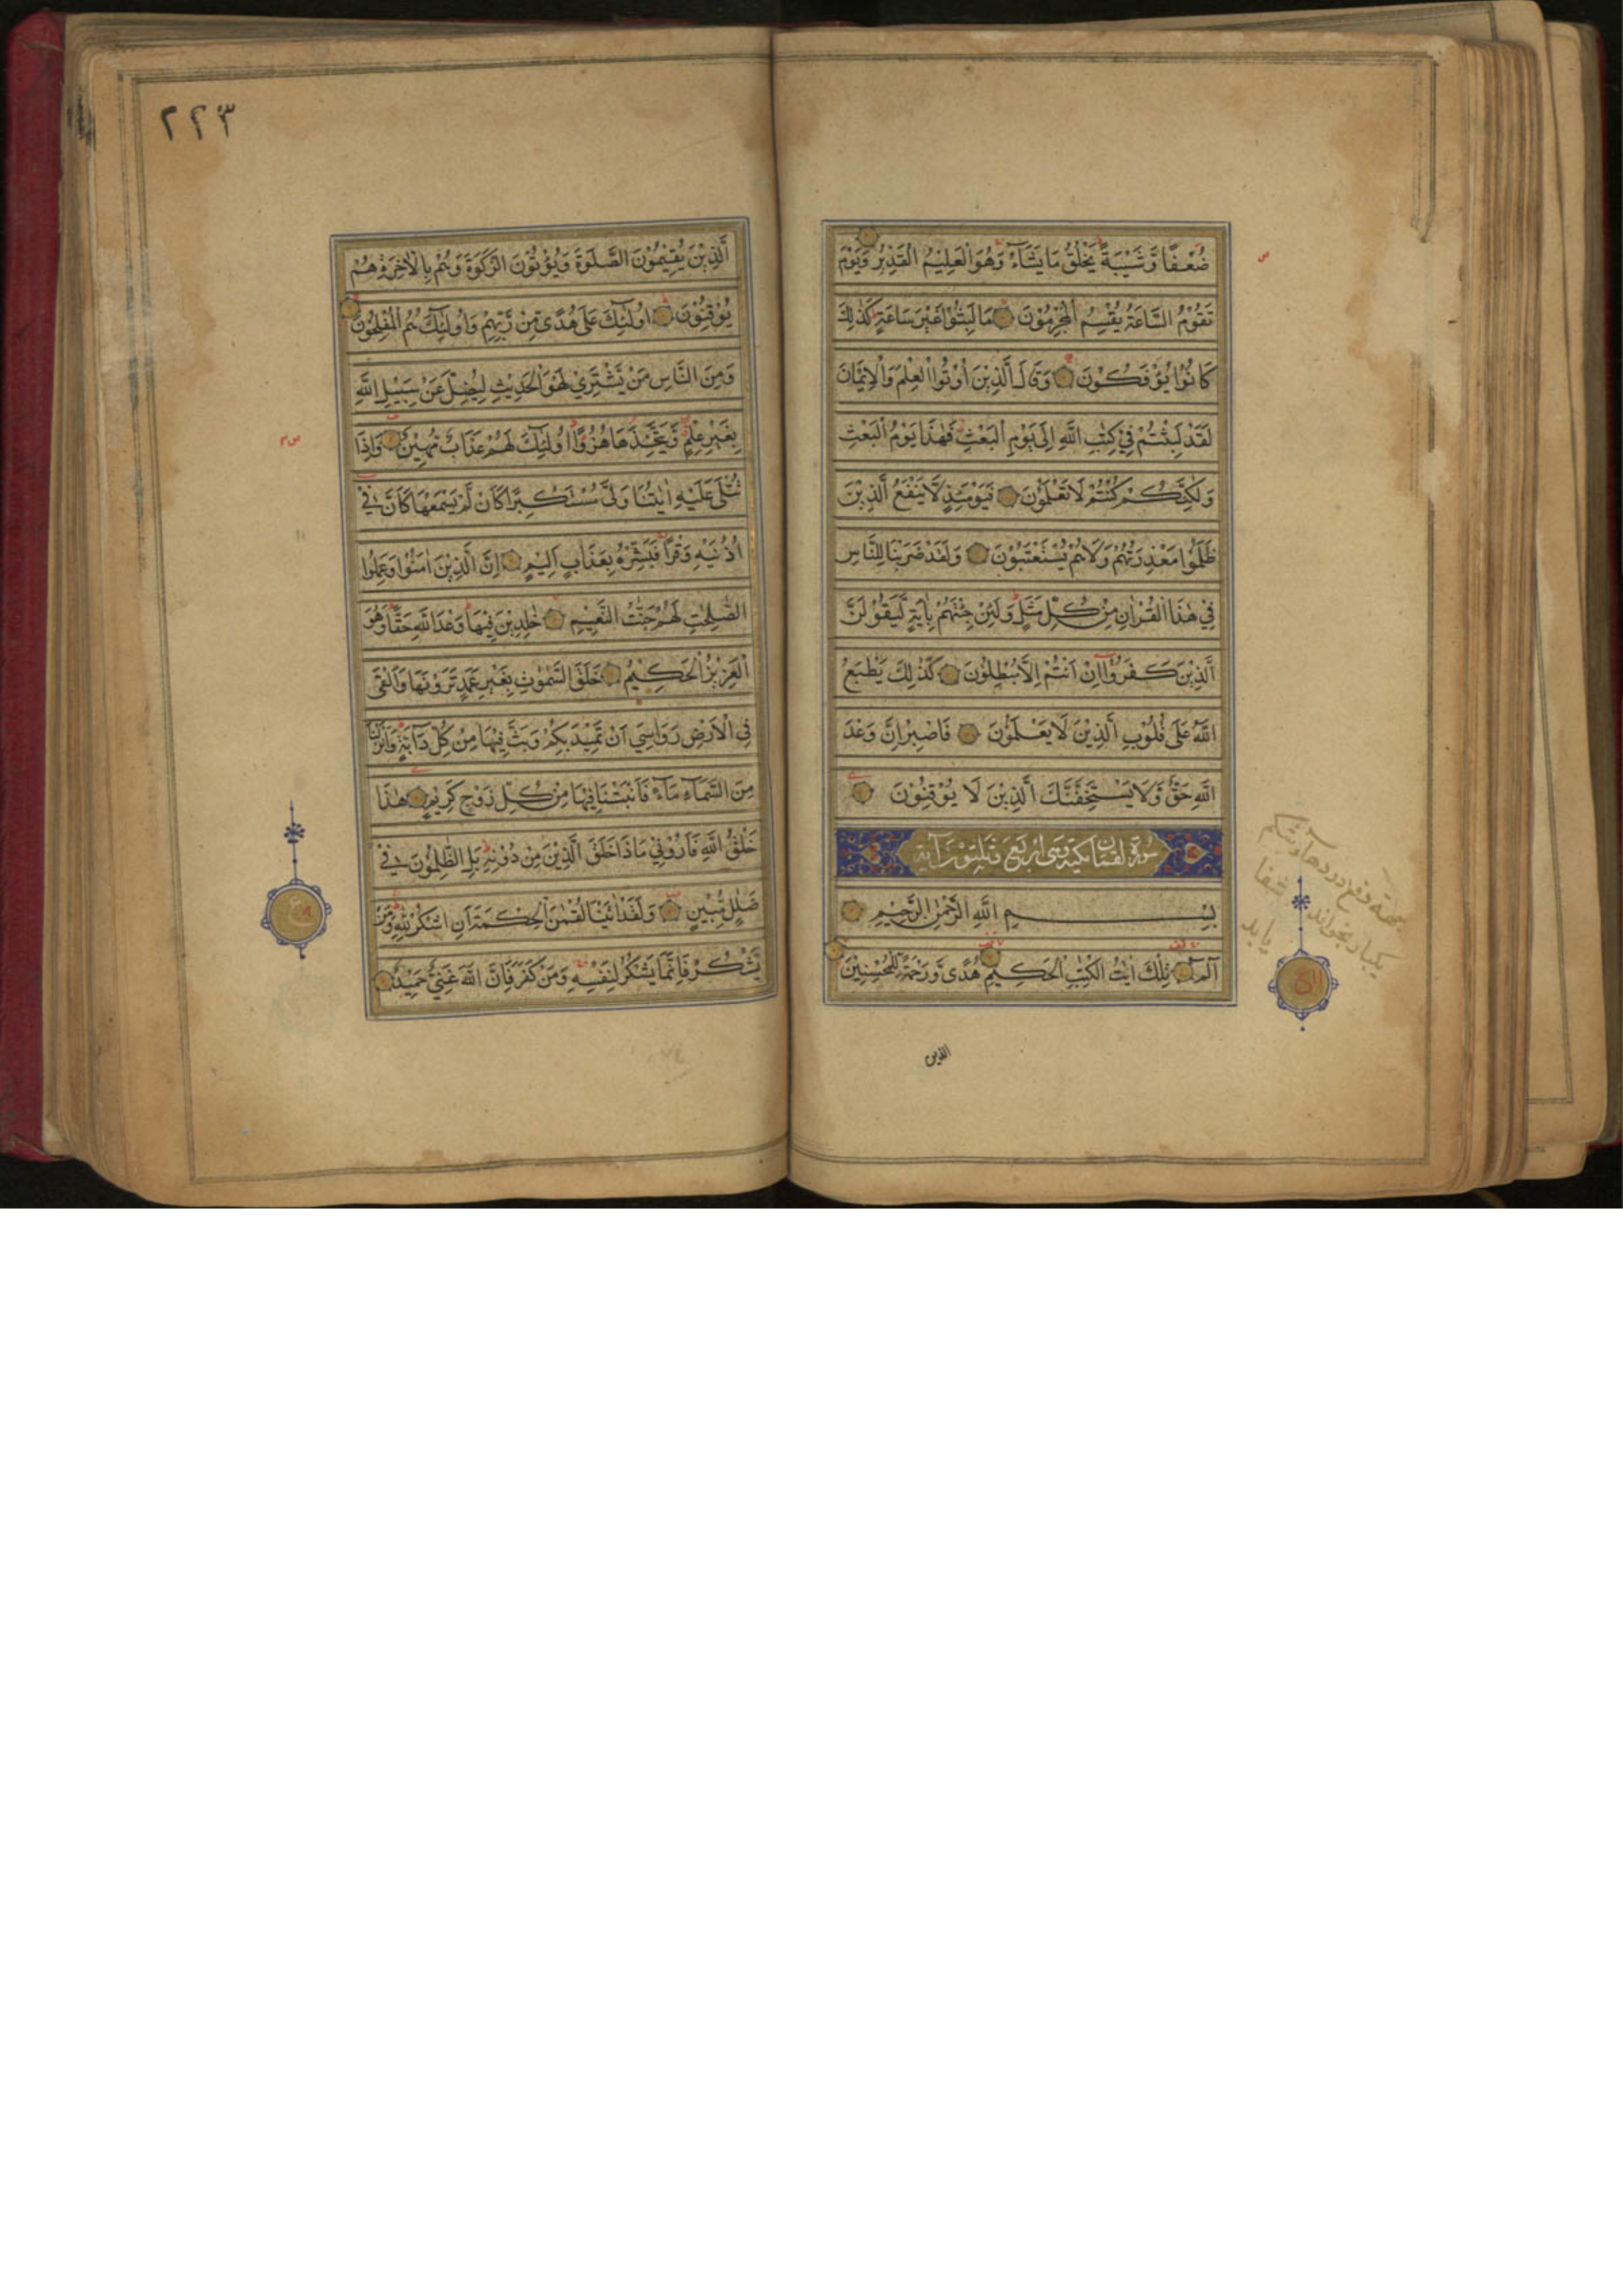 ضُعْفًا وَّشَيْبَةً يَخْلُقُ مَا يَشَآءُ وَهُوَ الْعَلِيْمُ الْقَدِيْرُ وَيَوْمَ
تَقُوْمُ السَّاعَةُ يُقْسِمُ الْمُجْرِمُوْنَ مَا لَبِثُوْا غَيْرَ سَاعَةٍ كَذٰلِكَ
كَانُوْا يُؤْفَكُوْنَ وَقَالَ الَّذِيْنَ أُوْتُوا الْعِلْمَ وَالْاِيْمَانَ
لَقَدْ لَبِثْتُمْ فِيْ كِتٰبِ اللّٰهِ اِلٰى يَوْمِ الْبَعْثِ فَهٰذَا يَوْمُ الْبَعْثِ
وَلٰكِنَّكُمْ كُنْتُمْ لَا تَعْلَمُوْنَ فَيَوْمَئِذٍ لَّا يَنْفَعُ الَّذِيْنَ
ظَلَمُوْا مَعْذِرَتُهُمْ وَلَا هُمْ يُسْتَعْتَبُوْنَ وَلَقَدْ ضَرَبْنَا لِلنَّاسِ
فِيْ هٰذَا الْقُرْاٰنِ مِنْ كُلِّ مَثَلٍ وَلَئِنْ جِئْتَهُمْ بِاٰيَةٍ لَّيَقُوْلَنَّ
الَّذِيْنَ كَفَرُوْٓا اِنْ اَنْتُمْ اِلَّا مُبْطِلُوْنَ كَذٰلِكَ يَطْبَعُ
اللّٰهُ عَلٰى قُلُوْبِ الَّذِيْنَ لَا يَعْلَمُوْنَ فَاصْبِرْ اِنَّ وَعْدَ
اللّٰهِ حَقٌّ وَّلَا يَسْتَخِفَّنَّكَ الَّذِيْنَ لَا يُوْقِنُوْنَ
سورة لقمان مكية وهى اربع وثلثون آية
بِسْمِ اللّٰهِ الرَّحْمٰنِ الرَّحِيْمِ
الٓمٓ تِلْكَ اٰيٰتُ الْكِتٰبِ الْحَكِيْمِ هُدًى وَّرَحْمَةً لِّلْمُحْسِنِيْنَ
الذين
يكبار بخواند شفا
يابد
٢٢٣
الَّذِيْنَ يُقِيْمُوْنَ الصَّلٰوةَ وَيُؤْتُوْنَ الزَّكٰوةَ وَهُمْ بِالْاٰخِرَةِ هُمْ
يُوْقِنُوْنَ اُولٰٓئِكَ عَلٰى هُدًى مِّنْ رَّبِّهِمْ وَاُولٰٓئِكَ هُمُ الْمُفْلِحُوْنَ
وَمِنَ النَّاسِ مَنْ يَّشْتَرِيْ لَهْوَ الْحَدِيْثِ لِيُضِلَّ عَنْ سَبِيْلِ اللّٰهِ
بِغَيْرِ عِلْمٍ وَّيَتَّخِذَهَا هُزُوًا اُولٰٓئِكَ لَهُمْ عَذَابٌ مُّهِيْنٌ وَاِذَا
تُتْلٰى عَلَيْهِ اٰيٰتُنَا وَلّٰى مُسْتَكْبِرًا كَاَنْ لَّمْ يَسْمَعْهَا كَاَنَّ فِيْٓ
اُذُنَيْهِ وَقْرًا فَبَشِّرْهُ بِعَذَابٍ اَلِيْمٍ اِنَّ الَّذِيْنَ اٰمَنُوْا وَعَمِلُوا
الصّٰلِحٰتِ لَهُمْ جَنّٰتُ النَّعِيْمِ خٰلِدِيْنَ فِيْهَا وَعْدَ اللّٰهِ حَقًّا وَهُوَ
الْعَزِيْزُ الْحَكِيْمُ خَلَقَ السَّمٰوٰتِ بِغَيْرِ عَمَدٍ تَرَوْنَهَا وَاَلْقٰى
فِي الْاَرْضِ رَوَاسِيَ اَنْ تَمِيْدَ بِكُمْ وَبَثَّ فِيْهَا مِنْ كُلِّ دَآبَّةٍ وَاَنْزَلْنَا
مِنَ السَّمَآءِ مَآءً فَاَنْبَتْنَا فِيْهَا مِنْ كُلِّ زَوْجٍ كَرِيْمٍ هٰذَا
خَلْقُ اللّٰهِ فَاَرُوْنِيْ مَاذَا خَلَقَ الَّذِيْنَ مِنْ دُوْنِهٖ بَلِ الظّٰلِمُوْنَ فِيْ
ضَلٰلٍ مُّبِيْنٍ وَلَقَدْ اٰتَيْنَا لُقْمٰنَ الْحِكْمَةَ اَنِ اشْكُرْ لِلّٰهِ وَمَنْ
يَّشْكُرْ فَاِنَّمَا يَشْكُرُ لِنَفْسِهٖ وَمَنْ كَفَرَ فَاِنَّ اللّٰهَ غَنِيٌّ حَمِيْدٌ